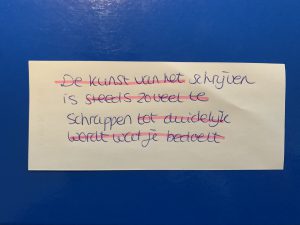 De kunst van het schrijven
is steeds zoveel te
schrappen tot duidelijk
wordt wat je bedoelt